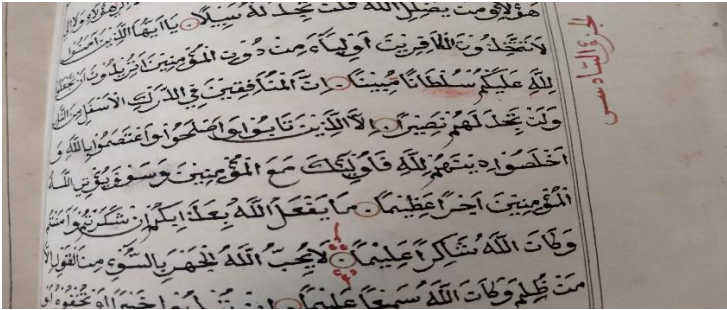 هَؤُلَاءِ وَمَن يُضْلِلِ اللَّهُ فَلَن تَجِدَ لَهُ سَبِيلًا يَا أَيُّهَا الَّذِينَ آمَنُوا
لَا تَتَّخِذُوا الْكَافِرِينَ أَوْلِيَاءَ مِن دُونِ الْمُؤْمِنِينَ أَتُرِيدُونَ أَن تَجْعَلُوا
لِلَّهِ عَلَيْكُمْ سُلْطَانًا مُبِينًا إِنَّ الْمُنَافِقِينَ فِي الدَّرْكِ الْأَسْفَلِ مِنَ النَّارِ
وَلَن تَجِدَ لَهُمْ نَصِيرًا إِلَّا الَّذِينَ تَابُوا وَأَصْلَحُوا وَاعْتَصَمُوا بِاللَّهِ وَ
أَخْلَصُوا دِينَهُمْ لِلَّهِ فَأُولَئِكَ مَعَ الْمُؤْمِنِينَ وَسَوْفَ يُؤْتِ اللَّهُ
الْمُؤْمِنِينَ أَجْرًا عَظِيمًا مَا يَفْعَلُ اللَّهُ بِعَذَابِكُمْ إِن شَكَرْتُمْ وَآمَنْتُمْ
وَكَانَ اللَّهُ شَاكِرًا عَلِيمًا لَا يُحِبُّ اللَّهُ الْجَهْرَ بِالسُّوءِ مِنَ الْقَوْلِ إِلَّا
مَن ظُلِمَ وَكَانَ اللَّهُ سَمِيعًا عَلِيمًا إِن تُبْدُوا خَيْرًا أَوْ تُخْفُوهُ أَوْ
الجزء السادس